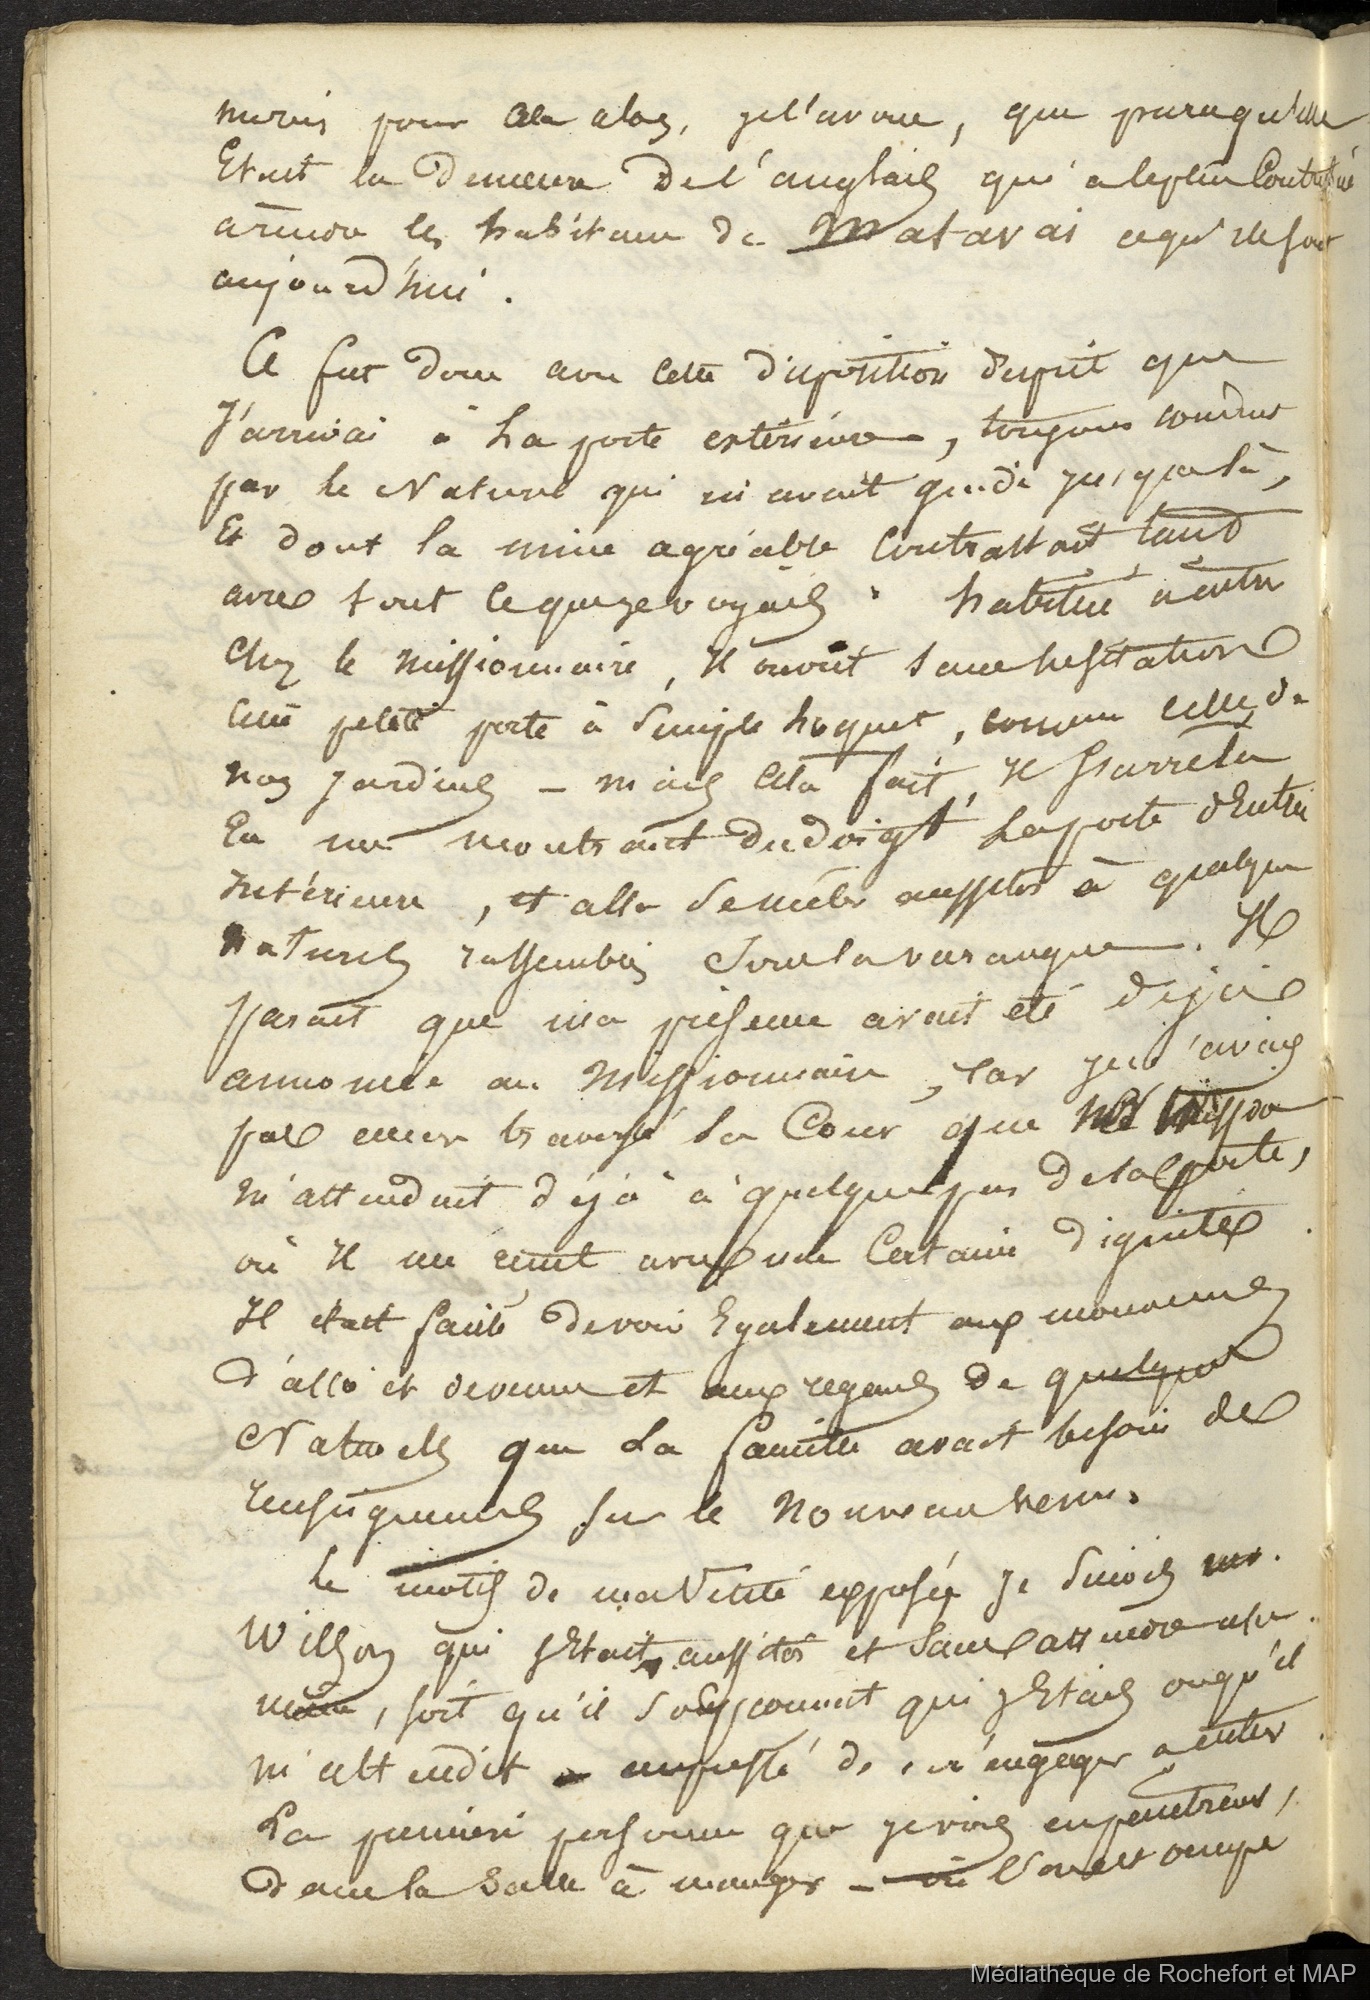 murais pour cela alors, je l'avoue, que parce qu'elle
Etait la demeure de l'anglais qui a le plus Contribué
a rendre les habitans de Matavai ce qu'ils sont
aujourd'hui.
Ce fut donc avec cette disposition d'esprit que
J'arrivai à La porte extérieure, toujours conduit
par le Naturel qui m'avait guidé jusques là,
Et dont la mine agréable Contrastait tant
avec tout ce que je voyais. habitué à entrer
Chez le missionnaire, Il ouvrit sans hesitation
Cette petite porte à Simple loquet, comme celle de
nos jardins – mais Cela fait, Il s'arrêta
En me montrant du doigt La porte d'Entrée
intérieure, et alla se mêler aussitôt à quelques
naturels rassemblés Sous la varangue. Il
parait que ma présence avait été déjà
annoncée au Missionnaire, car je n'avais
pas encore traversé La Cour que Mr Wilson
m'attendait déjà à quelques pas de la porte,
où Il me reçut avec une Certaine dignité
Il était facile de voir Egalement aux mouvemens
d'allé et de venue et aux regards de quelques
Naturels que La famille avait besoin de
renseignemens sur le Nouveau venu.
Le motif de ma Visite exposée je Suivis mr.
Wilson qui s'Etait, aussitôt et Sans attendre
même, soit qu'il Soupçonnat qui j'Etais ou qu'il
m'attendit empressé de m'engager a entrer
La première personne que je vis en penetrant,
dans la Salle à manger – où l'on est occupé